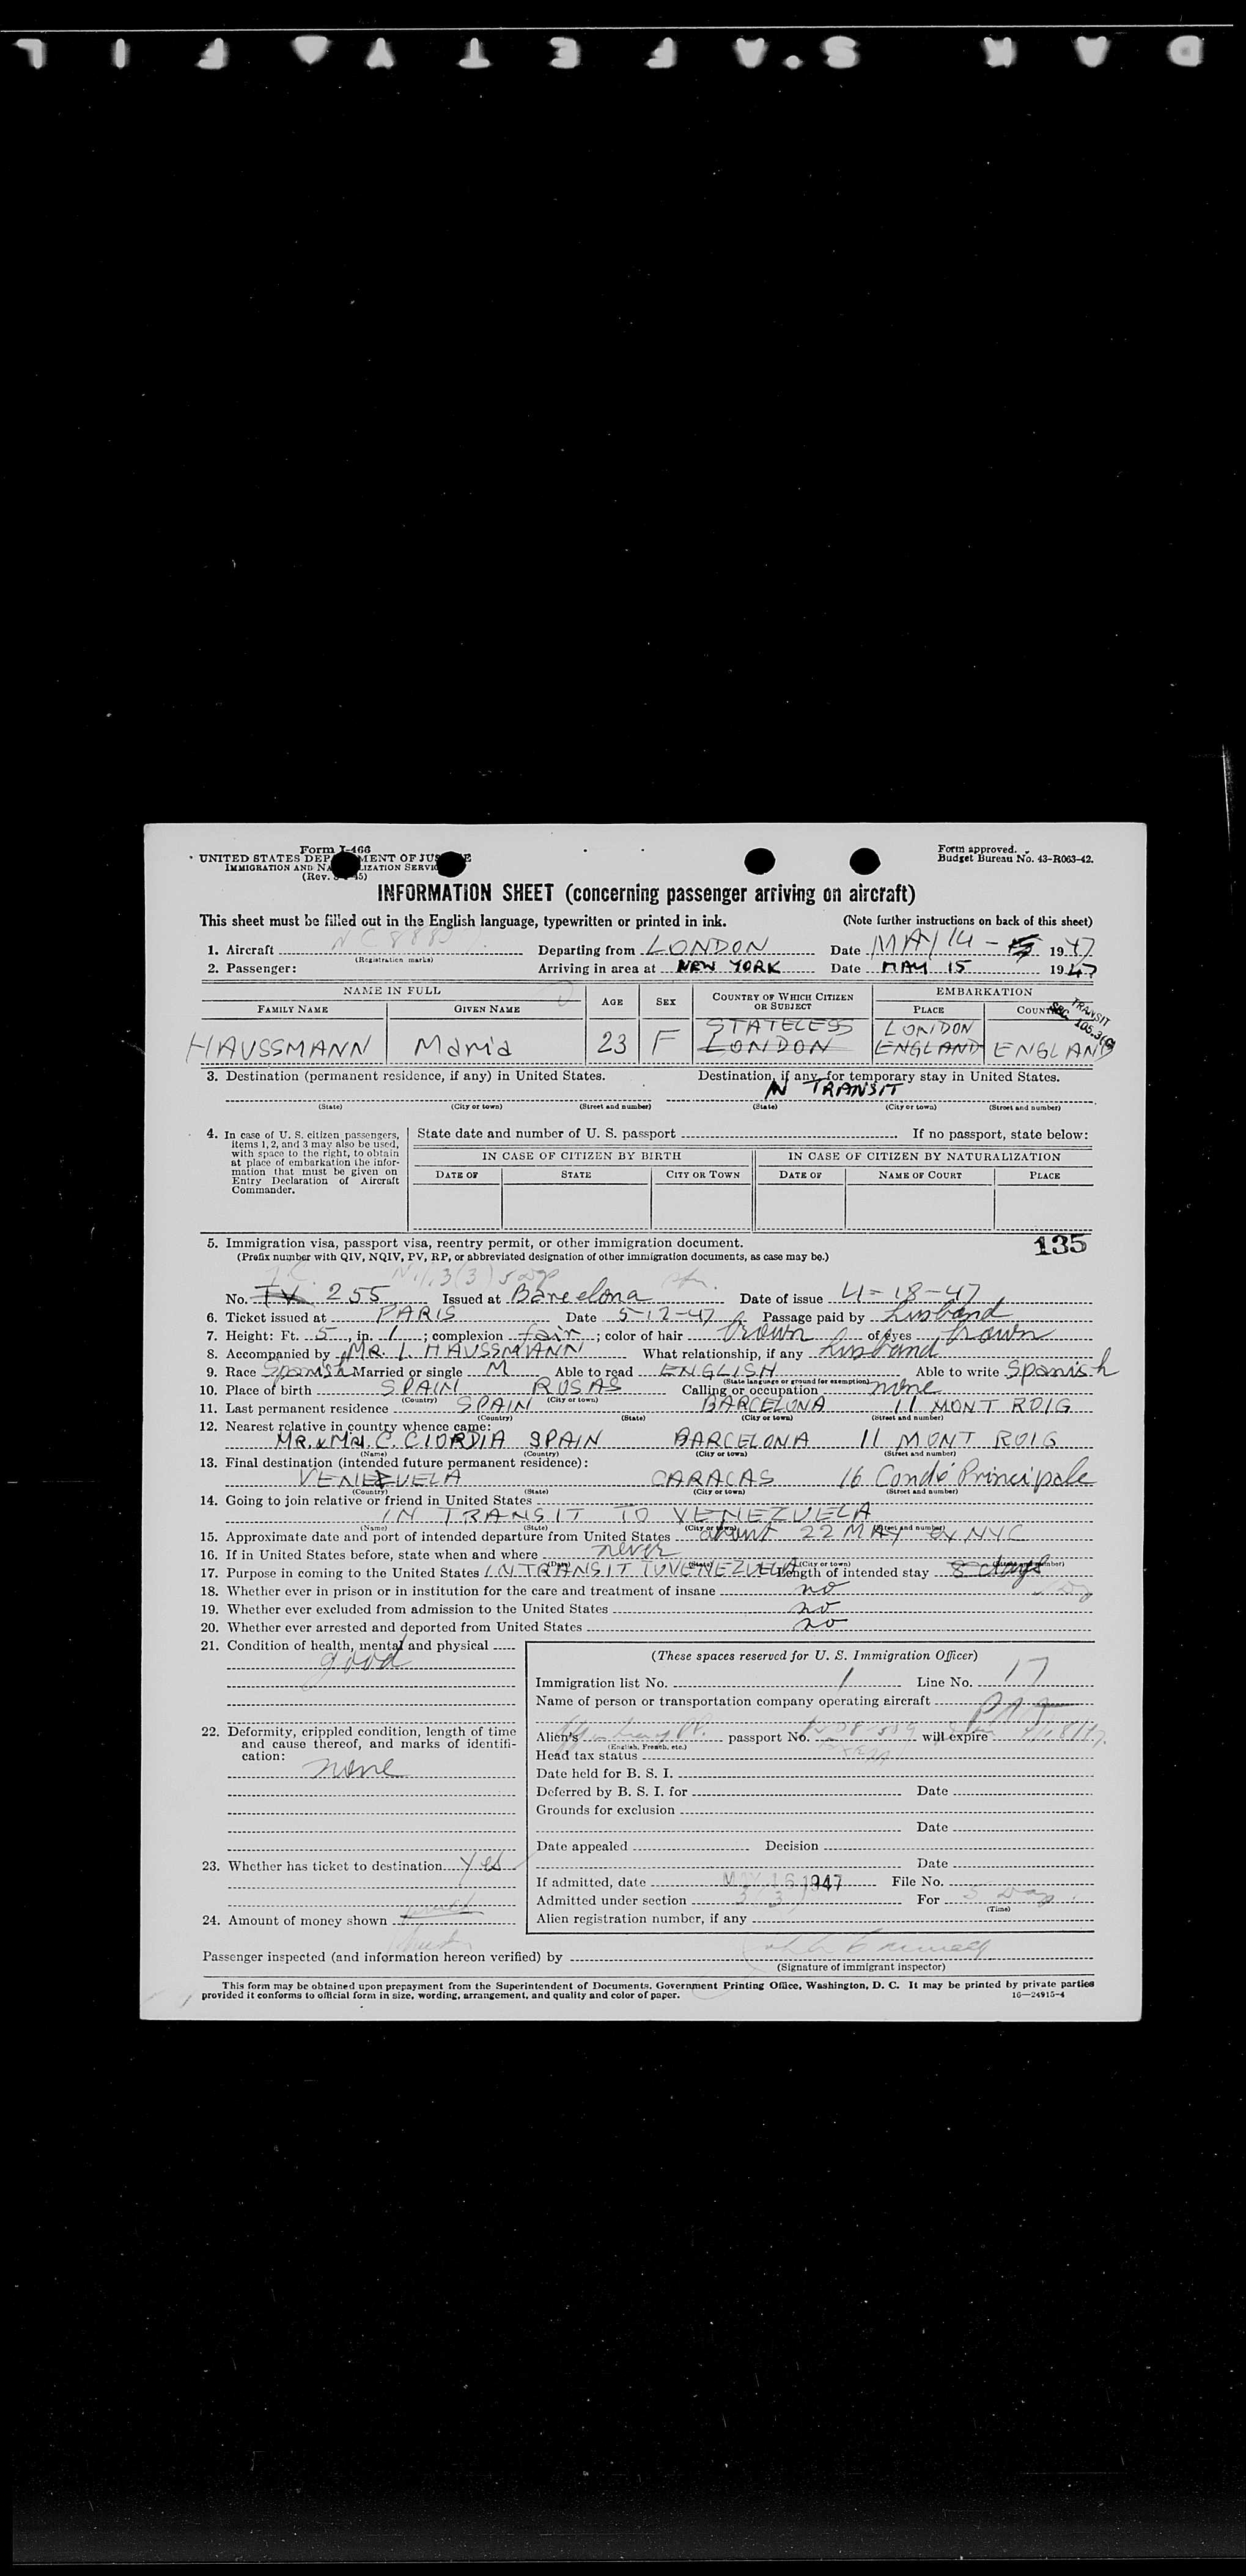 SAFETY FILM
Form I-466
UNITED STATES DEPARTMENT OF JUSTICE
IMMIGRATION AND NATURALIZATION SERVICE
(Rev. 45)
Form approved.
Budget Bureau No. 43-R063-42.
INFORMATION SHEET (concerning passenger arriving on aircraft)
This sheet must be filled out in the English language, typewritten or printed in ink. (Note further instructions on back of this sheet)
1. Aircraft (Registration marks) Departing from LONDON Date MAY 14 - 15 1947
2. Passenger: Arriving in area at NEW YORK Date MAY 15 1947
NAME IN FULL AGE SEX COUNTRY OF WHICH CITIZEN OR SUBJECT EMBARKATION
FAMILY NAME GIVEN NAME PLACE COUNTRY
TRANSIT
SEC. 105.3(C)
STATELESS LONDON
HAUSSMANN Maria 23 F LONDON ENGLAND ENGLAND
3. Destination (permanent residence, if any) in United States. Destination, if any, for temporary stay in United States.
IN TRANSIT
(State) (City or town) (Street and number) (State) (City or town) (Street and number)
4. In case of U. S. citizen passengers, items 1, 2, and 3 may also be used, with space to the right, to obtain at place of embarkation the information that must be given on Entry Declaration of Aircraft Commander.
State date and number of U. S. passport If no passport, state below:
IN CASE OF CITIZEN BY BIRTH IN CASE OF CITIZEN BY NATURALIZATION
DATE OF STATE CITY OR TOWN DATE OF NAME OF COURT PLACE
5. Immigration visa, passport visa, reentry permit, or other immigration document. 135
(Prefix number with QIV, NQIV, PV, RP, or abbreviated designation of other immigration documents, as case may be.)
No. TV 255 Issued at Barcelona Date of issue 4-18-47
6. Ticket issued at PARIS Date 5-12-47 Passage paid by husband
7. Height: Ft. 5, in. 1; complexion fair; color of hair brown of eyes brown
8. Accompanied by MR. L. HAUSSMANN What relationship, if any husband
9. Race Spanish Married or single M Able to read ENGLISH Able to write Spanish
(State language or ground for exemption)
10. Place of birth SPAIN ROSAS Calling or occupation none
(Country) (City or town)
11. Last permanent residence SPAIN BARCELONA 11 MONT ROIG
(Country) (State) (City or town) (Street and number)
12. Nearest relative in country whence came:
MR. & MRS. C. CIORDIA SPAIN BARCELONA 11 MONT ROIG
(Name) (Country) (City or town) (Street and number)
13. Final destination (intended future permanent residence):
VENEZUELA CARACAS 16 Condé Principale
(Country) (State) (City or town) (Street and number)
14. Going to join relative or friend in United States
IN TRANSIT TO VENEZUELA
(Name) (State) (City or town) (Street and number)
15. Approximate date and port of intended departure from United States about 22 MAY ex NYC
16. If in United States before, state when and where never
(Date) (State) (City or town) (Street and number)
17. Purpose in coming to the United States IN TRANSIT TO VENEZUELA Length of intended stay 8 days
18. Whether ever in prison or in institution for the care and treatment of insane no
19. Whether ever excluded from admission to the United States no
20. Whether ever arrested and deported from United States no
21. Condition of health, mental and physical
good
22. Deformity, crippled condition, length of time and cause thereof, and marks of identification:
none
23. Whether has ticket to destination yes
24. Amount of money shown
(These spaces reserved for U. S. Immigration Officer)
Immigration list No. 1 Line No. 17
Name of person or transportation company operating aircraft
Alien's passport No. will expire
(English, French, etc.)
Head tax status
Date held for B. S. I.
Deferred by B. S. I. for Date
Grounds for exclusion
Date
Date appealed Decision
Date
If admitted, date MAY 15 1947 File No.
Admitted under section 3(3) For 5 Days
(Time)
Alien registration number, if any
Passenger inspected (and information hereon verified) by
(Signature of immigrant inspector)
This form may be obtained upon prepayment from the Superintendent of Documents, Government Printing Office, Washington, D. C. It may be printed by private parties
provided it conforms to official form in size, wording, arrangement, and quality and color of paper. 16—24915-4